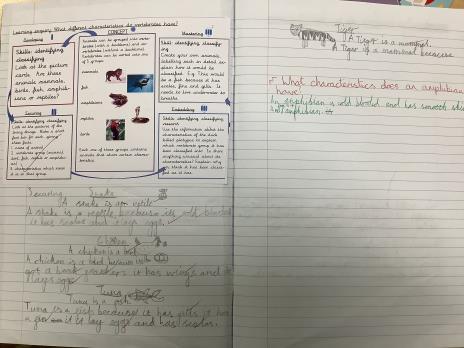 Learning inquiry: What different characteristics do vertebrates have?
Mastering
Skills: identifying
classifying
Look at the picture
cards. Are these
animals mammals,
birds, fish, amphib-
ians or reptiles?
CONCEPT
Animals can be grouped into verte-
brates (with a backbone) and in-
vertebrates (without a backbone).
Vertebrates can be sorted into one
of 5 groups:
mammals
fish
amphibians
reptiles
birds
Each one of these groups contains
animals that share certain charac-
teristics.
Skill: identifying classify-
ing
Create your own animals,
labelling each in detail ex-
plain how it would be
classified. Eg. This would
be a fish because it has
scales, fins and gills. It
needs to live underwater to
breathe.
Securing
Skills: identifying classifying
Look at the pictures of
the living things. Make a
fact
file for each giving
these facts:
1. name of animal
2. vertebrate group
3. characteristics which mean
it is in that group.
Embedding
Skills: identifying classifying
Use the information about the
characteristics of the duck
billed platypus to explain
which vertebrate group it
has been classified into. Is there
anything unusual about its
characteristics? Explain why
you think it has been classi-
fied as it has.
Securing Snake
A snake is a reptile
A snake is a reptile because its cold blooded
it has scales and lays eggs.
Chicken
A chicken is a bird
A chicken is a bird because
got a beak it has wings and
lays eggs
Tuna
Tuna is a fish
Tuna is a fish because it has gills it has
a it lay eggs and has scales.
Tiger
A Tiger is a mammal.
A Tiger is a mammal because
What characteristics does an amphibian
have?
An amphibian is cold blood and has smooth skin
amphibian.